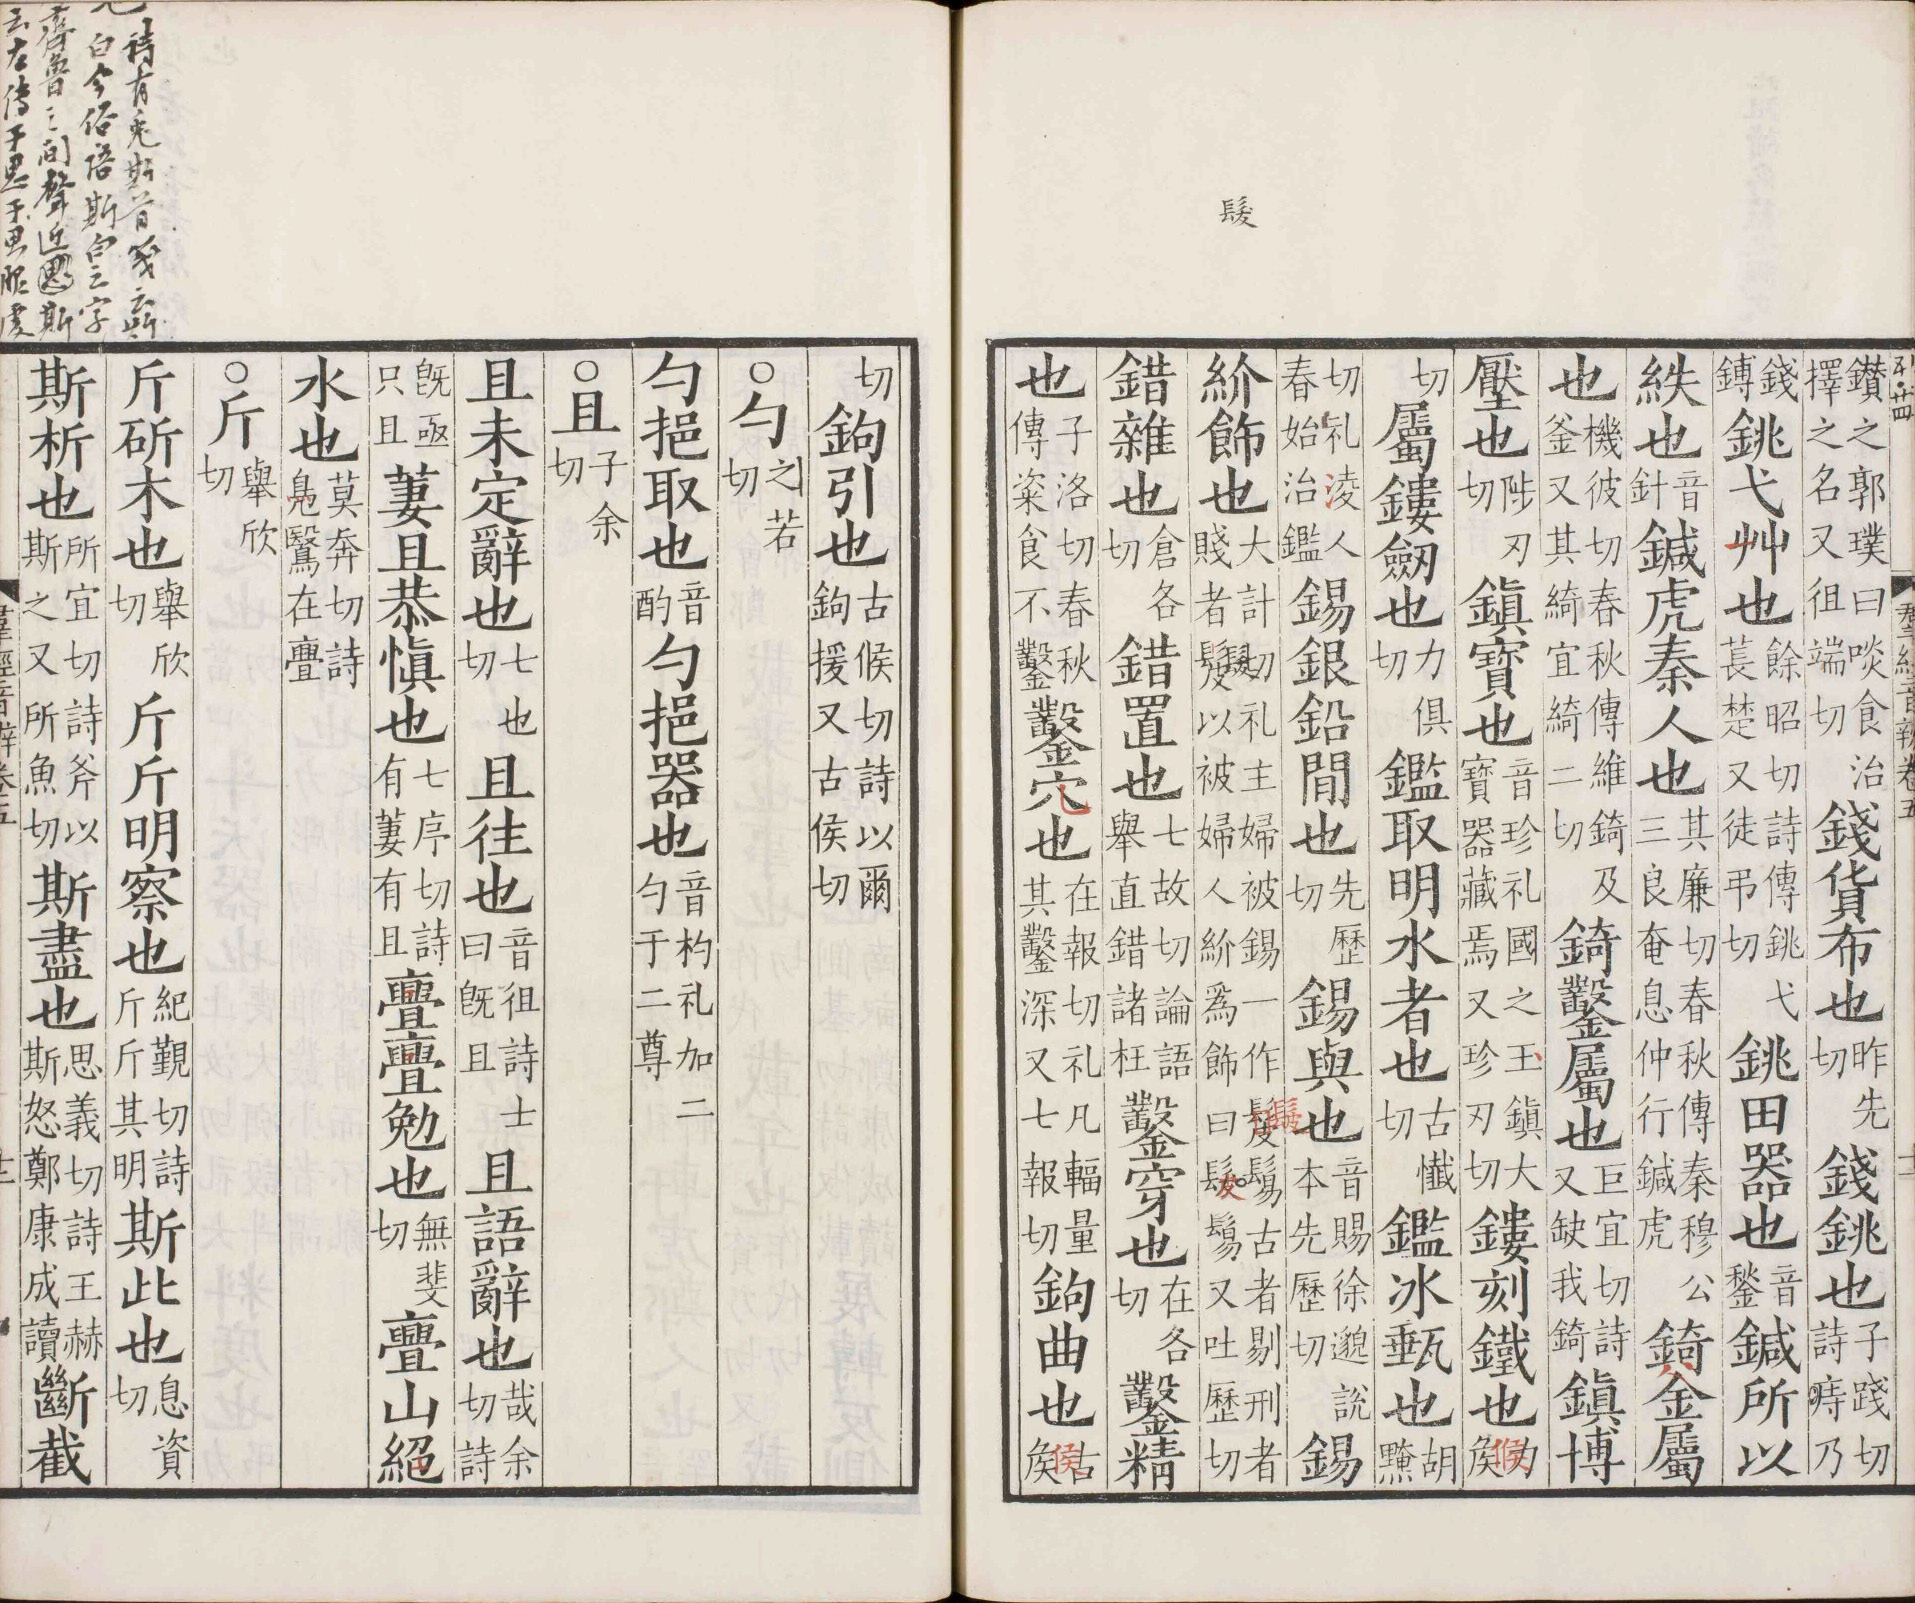 髲
鑚之郭璞曰啖食治擇之名又徂端切錢貨布也昨先切錢銚也子踐切詩痔乃
錢鏄銚弋艸也餘昭切詩傳銚弋萇楚又徒弔切銚田器也音鍫鍼所以
紩也音針鍼虎秦人也其廉切春秋傳秦穆公三良奄息仲行鍼虎錡金屬
也機彼切春秋傳維錡及釜又其綺宜綺二切錡鑿屬也巨宜切詩又缺我錡鎮博
壓也陟刃切鎮寶也音珍礼國之玉鎮大寶器藏焉又珍刃切鏤刻鐵也力矦
切屬鏤劒也力俱切鑑取明水者也古懺切鑑冰甀也胡黤
切礼淩人春始治鑑錫銀鉛間也先歷切錫與也音賜徐邈說本先歷切錫
紒飾也大計切礼主婦被錫一作髲鬄古者剔刑者賤者髮以被婦人紒爲飾曰髲鬄又吐歷切
錯雜也倉各切錯置也七故切論語舉直錯諸枉鑿穿也在各切鑿精
也子洛切春秋傳粢食不鑿鑿穴也在報切礼凡輻量其鑿深又七報切鉤曲也古矦
切鉤引也古候切詩以爾鉤援又古侯切
○勺之若切
勺挹取也音酌勺挹器也音杓礼加二勺于二尊
○且子余切
且未定辭也七也切且往也音徂詩士曰旣且且語辭也哉余切詩
旣亟只且萋且恭愼也七序切詩有萋有且亹亹勉也無斐切亹山絕
水也莫奔切詩鳧鷖在亹
○斤舉欣切
斤斫木也舉欣切斤斤明察也紀覲切詩斤斤其明斯此也息資切
斯析也所宜切詩斧以斯之又所魚切斯盡也思義切詩王赫斯怒鄭康成讀斷截
詩有兎斯首箋云斯
白今俗語斯白之字
齊魯之間聲近斯
云左傳于思于思服虔